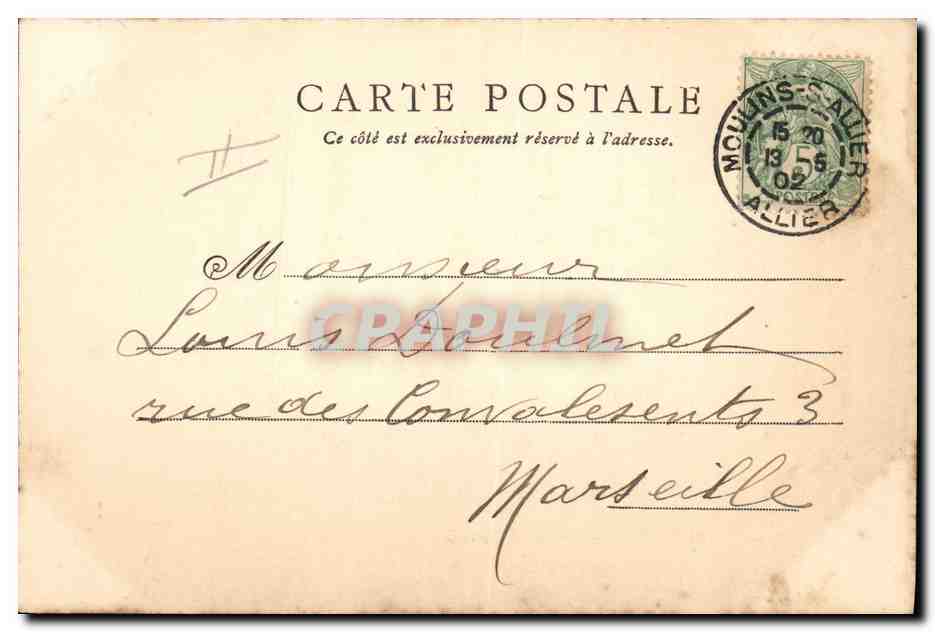 CARTE POSTALE
Ce côté est exclusivement réservé à l'adresse.
II
MOULINS-S-ALLIER
15 20
13 5
02
ALLIER
5
POSTES
Monsieur
CPAPHIL
Louis Doulmet
rue des Convalesents 3
Marseille